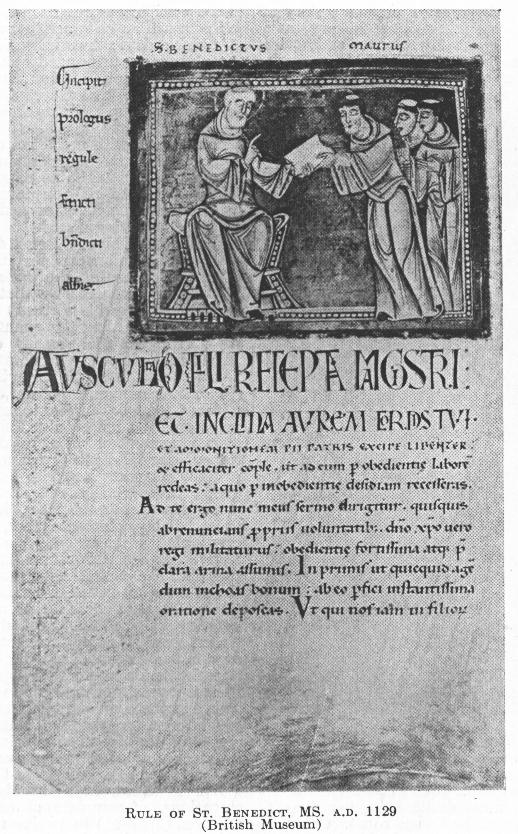 S. BENEDICTVS MAURUS
Incipit
prologus
regule
sancti
bndicti
abb
AUSCULTA O FILI PRECEPTA MAGISTRI:
ET · INCLINA AUREM CORDIS TUI ·
ET ADMONITIONEM PII PATRIS EXCIPE LIBENTER:
& efficaciter cople · ut ad eum p obedientie laborē
redeas: a quo p inobedientie desidiam recesseras.
Ad te ergo nunc meus sermo dirigitur · quisquis
abrenuncians ꝓpriis voluntatib; · dño xpo vero
regi militaturus: obedientie fortissima atq; p̄
clara arma assumis. In primis ut quicquid age
dum inchoas bonum: ab eo pfici instantissima
oratione deposcas. Vt qui nos iam in filior
RULE OF ST. BENEDICT, MS. A.D. 1129
(British Museum)